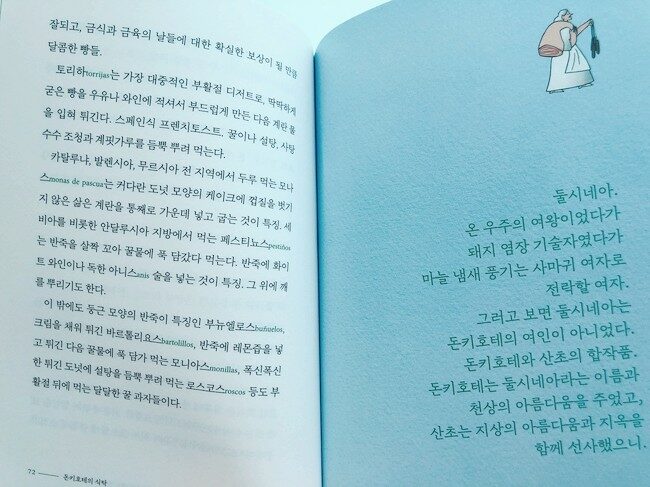 잘되고, 금식과 금육의 날들에 대한 확실한 보상이 될 만큼
달콤한 빵들.
토리하torrijas는 가장 대중적인 부활절 디저트로, 딱딱하게
굳은 빵을 우유나 와인에 적셔서 부드럽게 만든 다음 계란 물
을 입혀 튀긴다. 스페인식 프렌치토스트. 꿀이나 설탕, 사탕
수수 조청과 계핏가루를 듬뿍 뿌려 먹는다.
카탈루냐, 발렌시아, 무르시아 전 지역에서 두루 먹는 모나
스monas de pascua는 커다란 도넛 모양의 케이크에 껍질을 벗기
지 않은 삶은 계란을 통째로 가운데 넣고 굽는 것이 특징. 세
비아를 비롯한 안달루시아 지방에서 먹는 페스티뇨스pestiños
는 반죽을 살짝 꼬아 꿀물에 푹 담갔다 먹는다. 반죽에 화이
트 와인이나 독한 아니스anis 술을 넣는 것이 특징. 그 위에 깨
를 뿌리기도 한다.
이 밖에도 둥근 모양의 반죽이 특징인 부뉴엘로스buñuelos,
크림을 채워 튀긴 바르톨리요스bartolillos, 반죽에 레몬즙을 넣
고 튀긴 다음 꿀물에 푹 담가 먹는 모니아스monillas, 폭신폭신
한 튀긴 도넛에 설탕을 듬뿍 뿌려 먹는 로스코스roscos 등도 부
활절 뒤에 먹는 달달한 꿀 과자들이다.
72 돈키호테의 식탁
둘시네아.
온 우주의 여왕이었다가
돼지 염장 기술자였다가
마늘 냄새 풍기는 사마귀 여자로
전락할 여자.
그러고 보면 둘시네아는
돈키호테의 여인이 아니었다.
돈키호테와 산초의 합작품.
돈키호테는 둘시네아라는 이름과
천상의 아름다움을 주었고,
산초는 지상의 아름다움과 지옥을
함께 선사했으니.